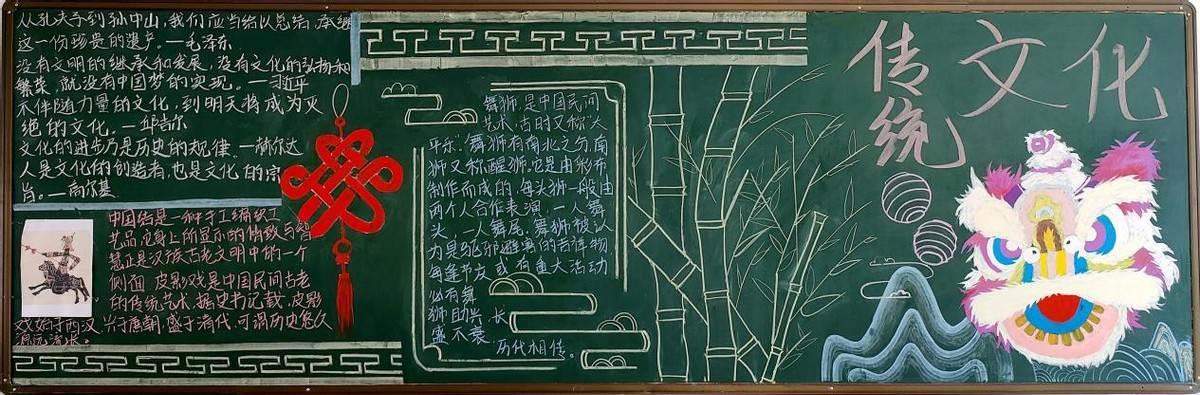 从孔夫子到孙中山，我们应当给以总结，承继
这一份珍贵的遗产。—毛泽东
没有文明的继承和发展，没有文化的弘扬和
繁荣，就没有中国梦的实现。—习近平
不伴随力量的文化，到明天将成为灭
绝的文化。—丘吉尔
文化的进步乃是历史的规律。—赫尔达
人是文化的创造者，也是文化的宗
旨。—高尔基
中国结是一种手工编织工
艺品，它身上所显示的情致与智
慧正是汉族古老文明中的一个
侧面 皮影戏是中国民间古老
的传统艺术，据史书记载，皮影
戏始于西汉，兴于唐朝，盛于清代，可谓历史悠久
源远流长。
舞狮，是中国民间
艺术，古时又称“太
平乐”舞狮有南北之分，南
狮又称醒狮。它是由彩布
制作而成的，每头狮一般由
两个人合作表演，一人舞
头，一人舞尾，舞狮被认
为是驱邪避害的吉祥物
每逢节庆或有重大活动
必有舞
狮助兴，长
盛不衰
历代相传。
传统
文化